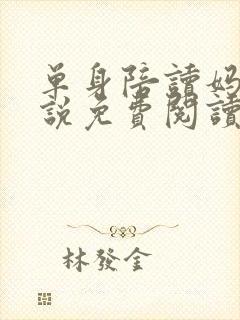 單身陪讀媽
說免費閱讀
林發金